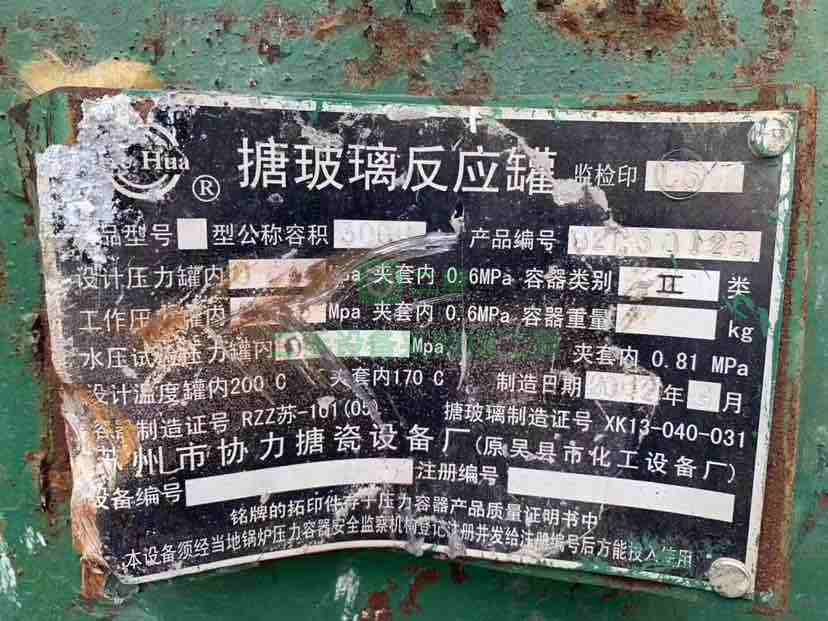 Hua ® 搪玻璃反应罐 监检印
品型号 型公称容积 产品编号
设计压力罐内 Mpa 夹套内 0.6MPa 容器类别 II 类
工作压力罐内 Mpa 夹套内 0.6MPa 容器重量 kg
水压试验压力罐内 Mpa 夹套内 0.81 MPa
设计温度罐内200 C 夹套内170 C 制造日期 年 月
容器制造证号 RZZ苏-101(05) 搪玻璃制造证号 XK13-040-031
苏州市协力搪瓷设备厂(原吴县市化工设备厂)
设备编号 注册编号
铭牌的拓印件存于压力容器产品质量证明书中
本设备须经当地锅炉压力容器安全监察机构登记注册并发给注册编号后方能投入使用